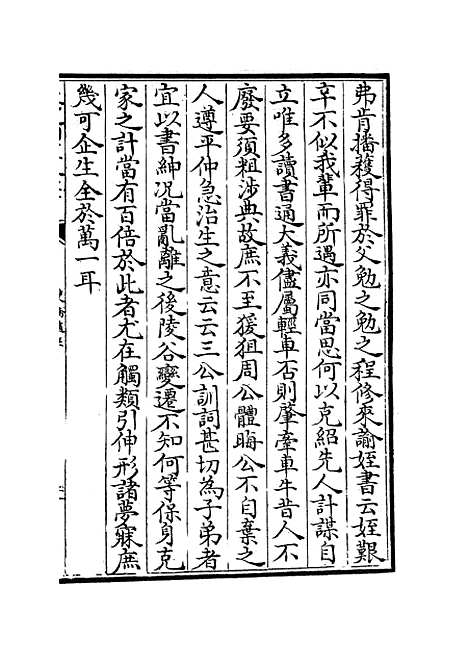 弗肯播穫得罪於父勉之勉之程修來諭姪書云姪艱
辛不似我輩而所遇亦同當思何以克紹先人計謀自
立唯多讀書通大義儘屬輕車否則肇牽車牛昔人不
廢要須粗涉典故庶不至猨狙周公體晦公不自棄之
人遵平仲急治生之意云云三公訓詞甚切為子弟者
宜以書紳况當亂離之後陵谷變遷不知何等保身克
家之計當有百倍於此者尤在觸類引伸形諸夢寐庶
幾可企生全於萬一耳